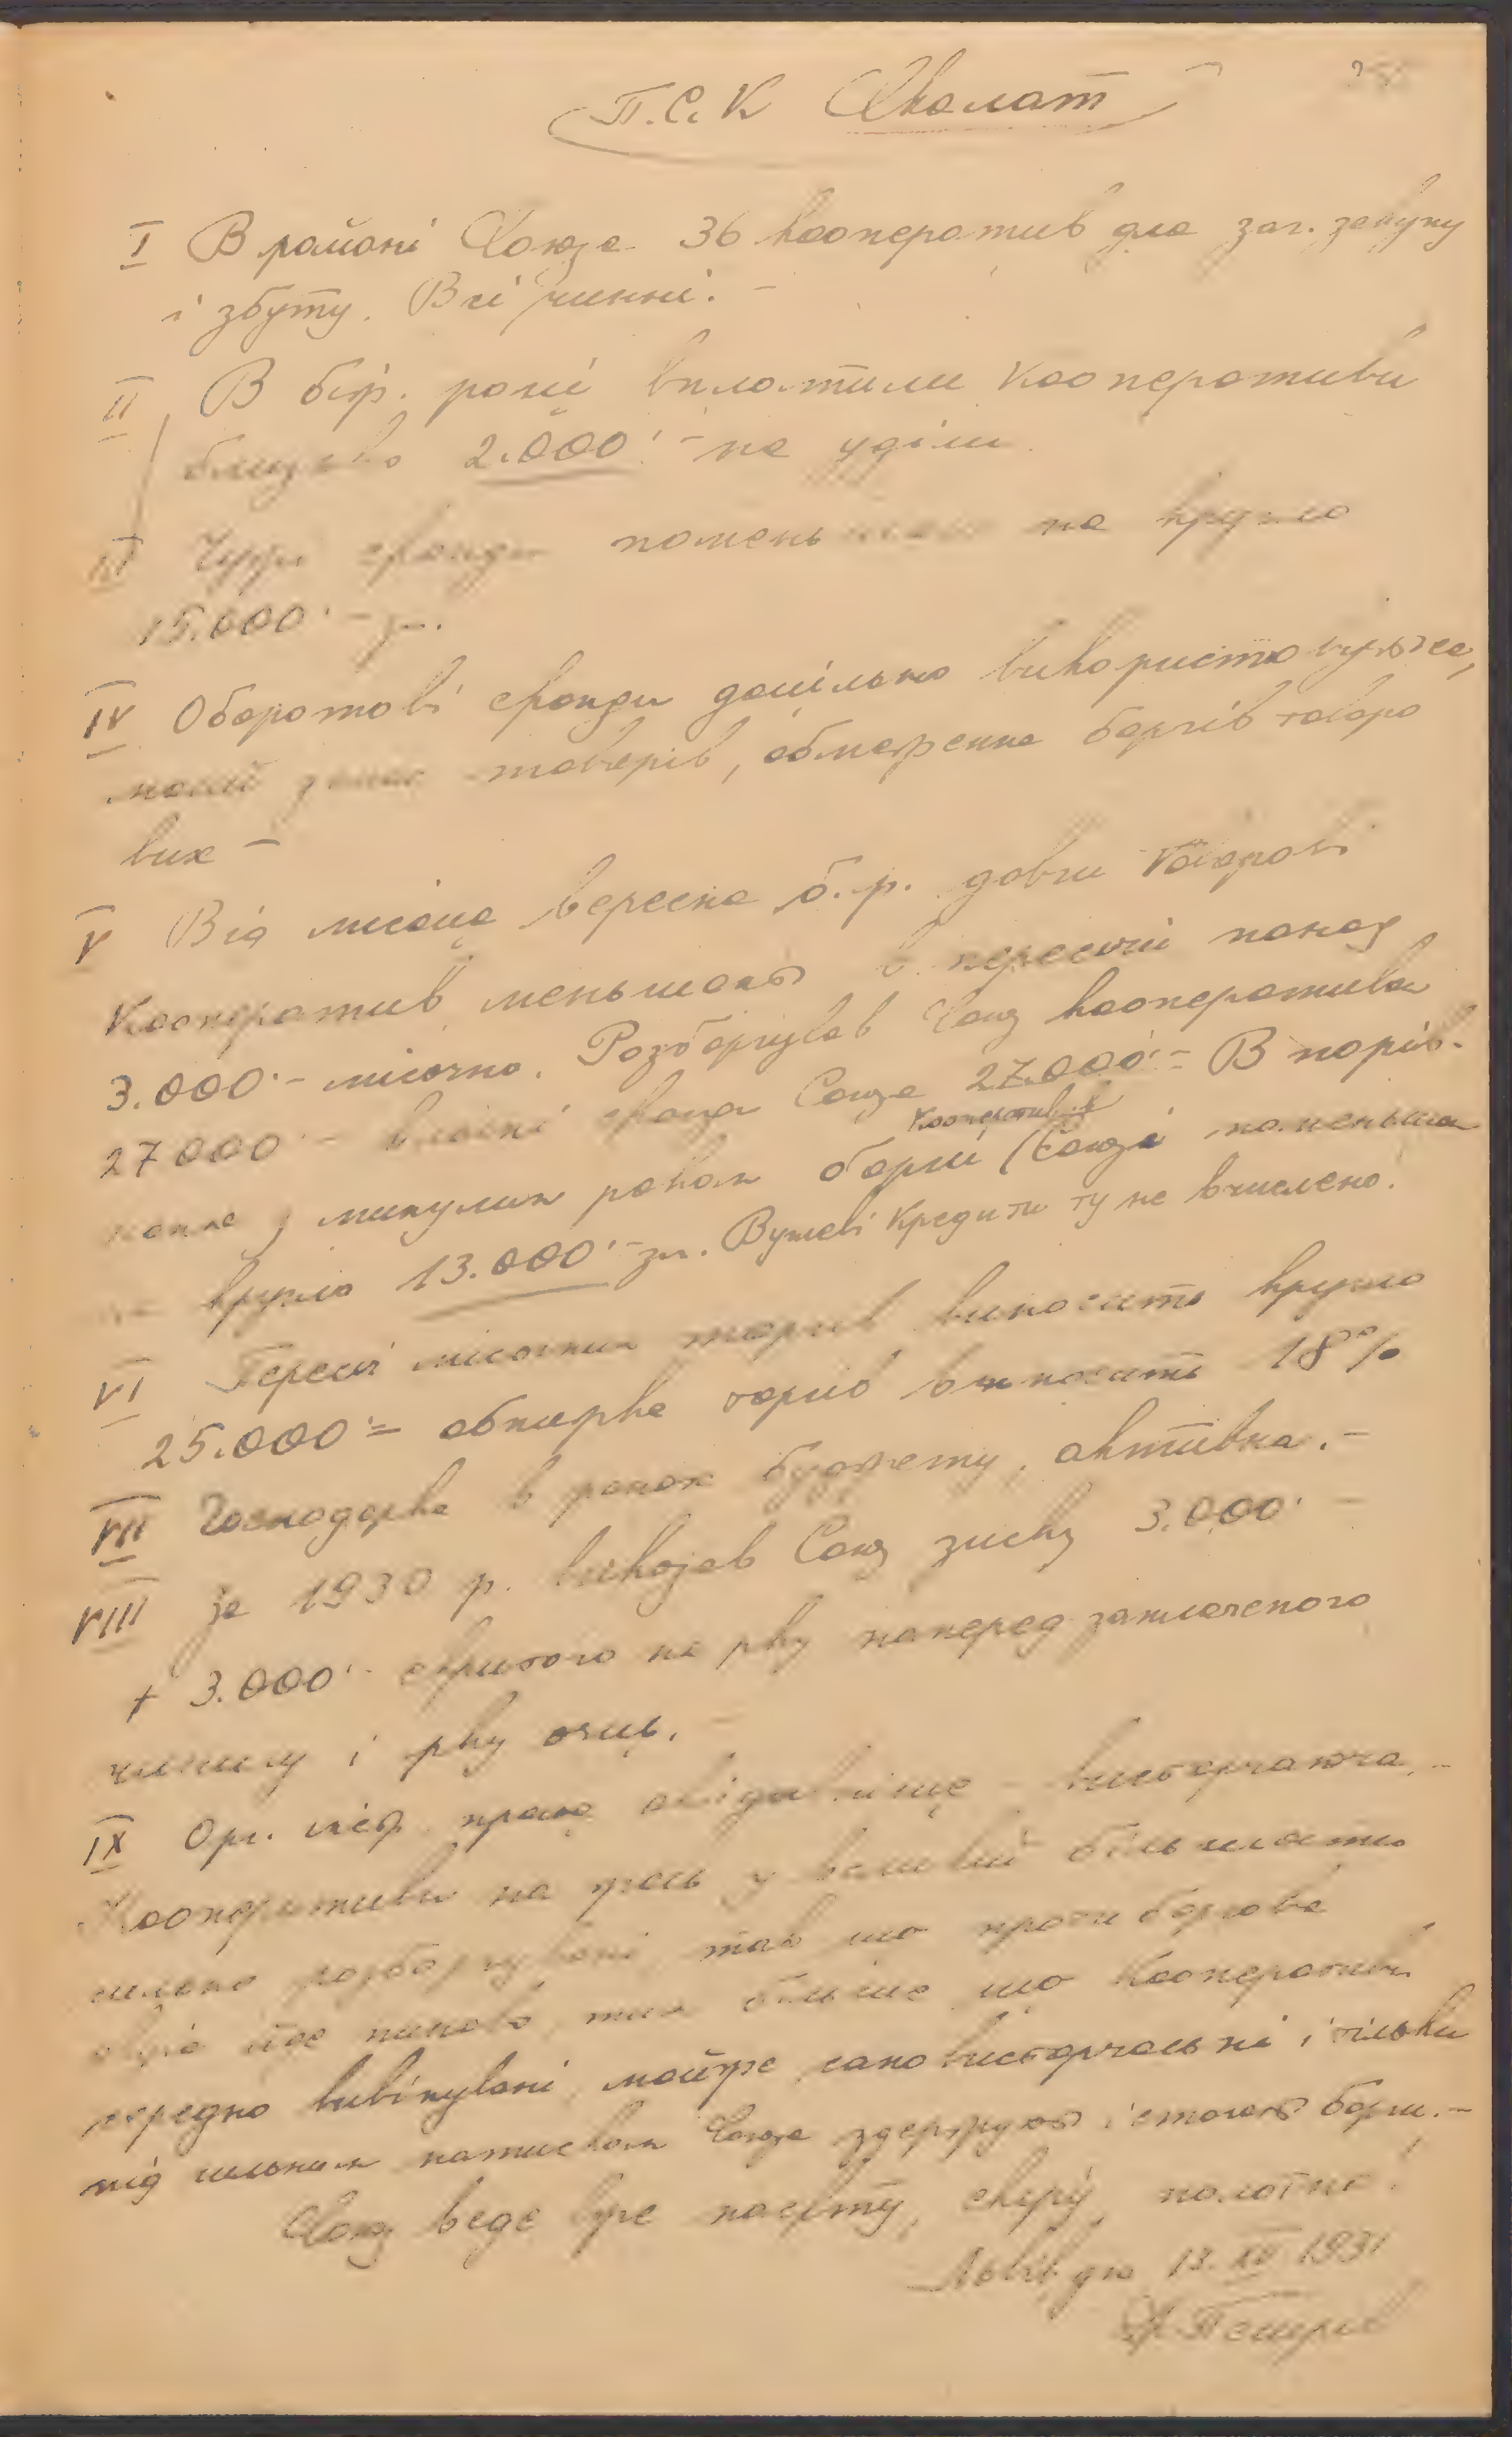 П.С.К Сколат
I В районі Союза 36 кооператив для заг. закупу
і збуту. Всі чинні. –
II В біж. році вплатили кооперативи
близько 2.000·– на уділи
III Чужі фонди поменьшали на кругло
15.000·–
IV Оборотові фонди доцільно використовуються,
малий запас товарів, обмеження боргів товаро
вих –
V Від місяця вересня б.р. довги товарові
Кооператив меньшають в пересічи понад
3.000·– місячно. Розборгував Союз кооперативи
27000·– власні фонди Союза 27.000·– В порів-
нанню з минулим роком борги кооператив в Союзі поменьшали
на кругло 13.000·– зл. Вугіл. кредити ту не вчислено.
VI Пересіч місячних торгів виносить кругло
25.000·= обнижка торгів виносить 18%
VII Господарка в рамах буджету, активна. –
VIII За 1930 р. виказав Союз зиску 3.000·–
+ 3.000·– скритого на рку наперед заплаченого
чиншу і рку очик. –
IX Орг. інсп. праця вистарчаюча. –
Кооперативи на загал у великій більшости
сильно розборгувані так що протиборгова
акція йде пиняво, тим більше що кооперативи
середно вивінувані, майже самовистарчальні і тільки
під сильним натиском Союза здержують і стягають борги. –
Союз веде вже нафту, скіру, полотна!
Львів дня 13. XII 1931